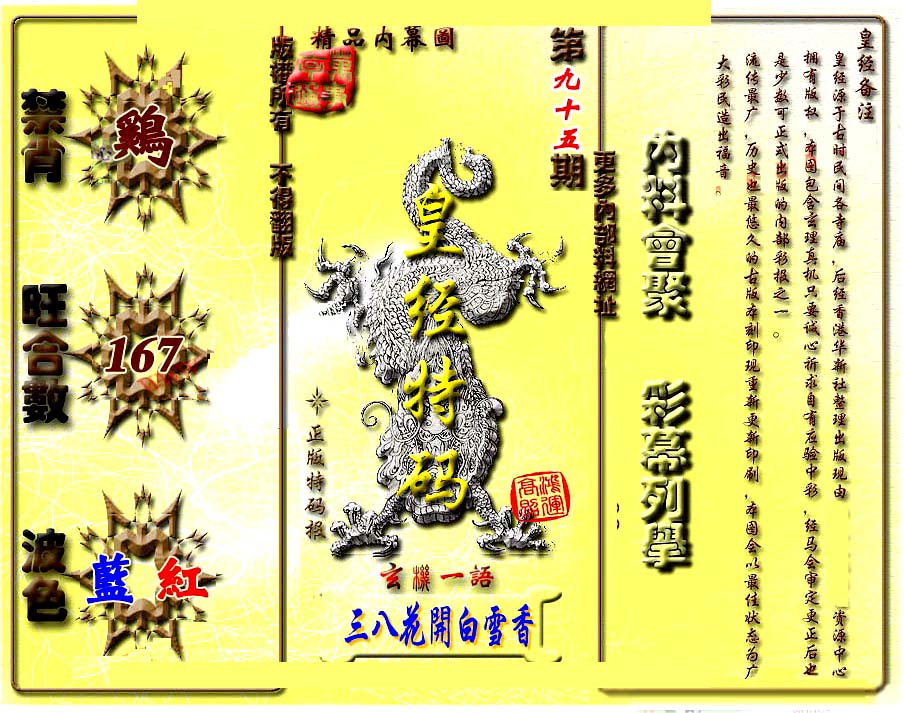 精品内幕圖
版權所有 不得翻版
第九十五期
更多内部料網址
内料會聚 彩幕列舉
禁肖
鷄
旺合數
167
波色
藍 紅
皇经特码
正版特码报
鴻運高照
玄機一語
三八花開白雪香
皇经备注
皇经源于古时民间各寺庙，后经香港华新社整理出版现由 资源中心
拥有版权，本图包含玄理真机只要诚心祈求自有应验中彩，经马会审定更正后也
是少数可正式出版的内部彩报之一。
流传最广，历史也最悠久的古版本刻印现重新更新印刷，本图会以最佳状态为广
大彩民造出福音